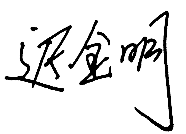 迟金明